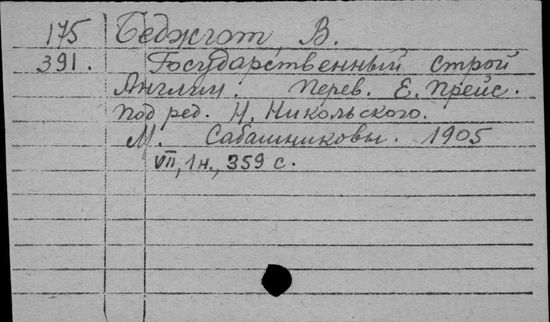 175 Беджгот В.
391. Государственный строй
Англии. Перев. Е. Прейс.
Под ред. Н. Никольского.
М. Сабашниковы. 1905
VII, 1 н., 359 с.